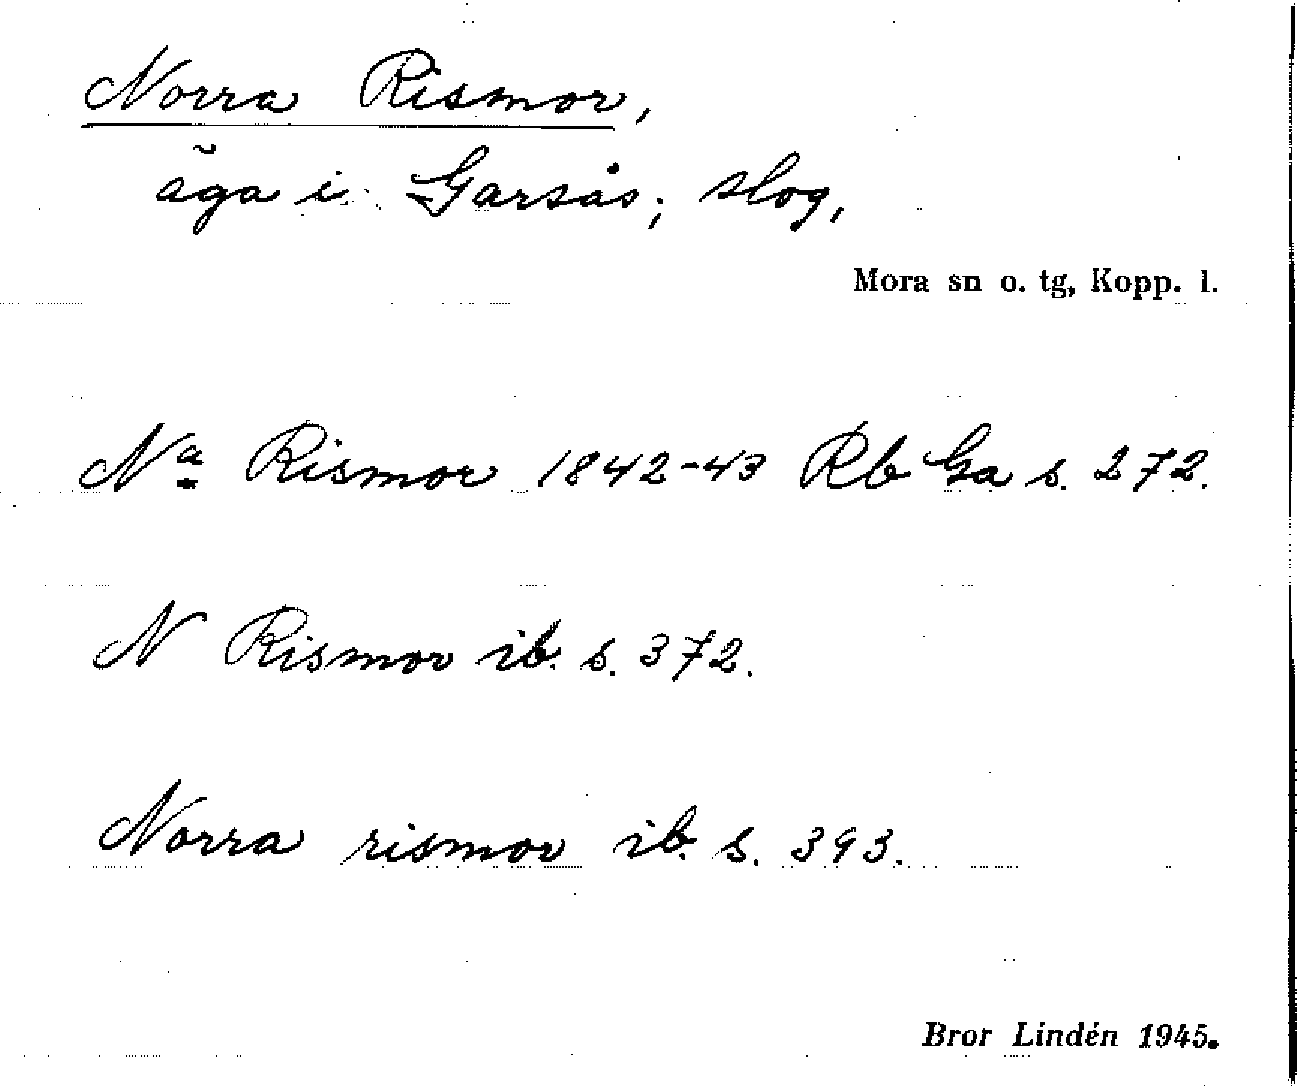 Norra Rismor,
äga i Garsås; slog,
Mora sn o. tg, Kopp. l.
Nª Rismor 1842-43 Rb Ga s. 272.
N Rismor ib. s. 372.
Norra rismor ib. s. 393.
Bror Lindén 1945.